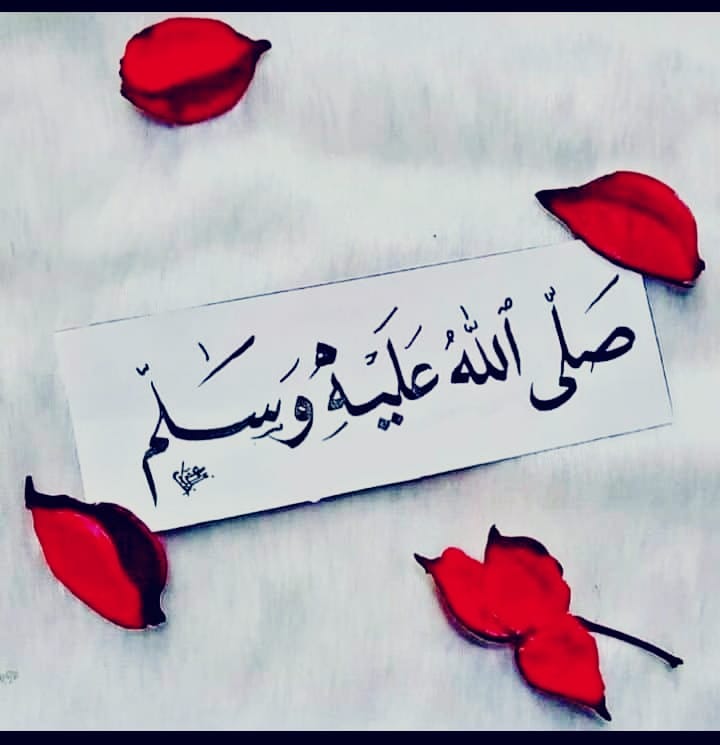 صَلَّى ٱللّٰهُ عَلَيْهِ وَسَلَّمَ